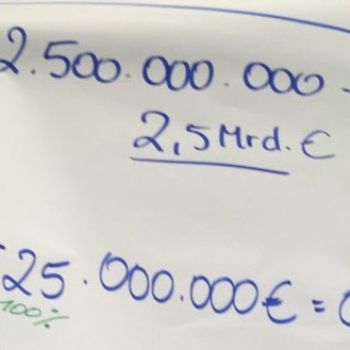 2.500.000.000
2,5 Mrd. €
25.000.000€ =
100%